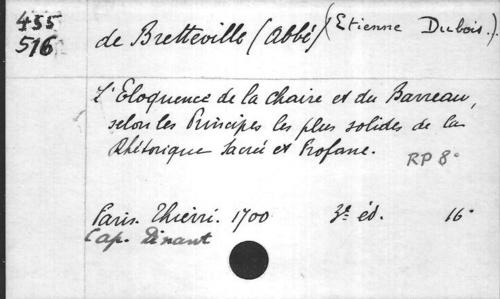 455
516
de Bretteville (Abbé) (Etienne Dubois.).
L'Eloquence de la Chaire et du Barreau,
selon les Principes les plus solides de la
Rhétorique Sacrée et Profane.
RP 8°
Paris. Thierri. 1700 3e éd. 16°
Cap. Dinant